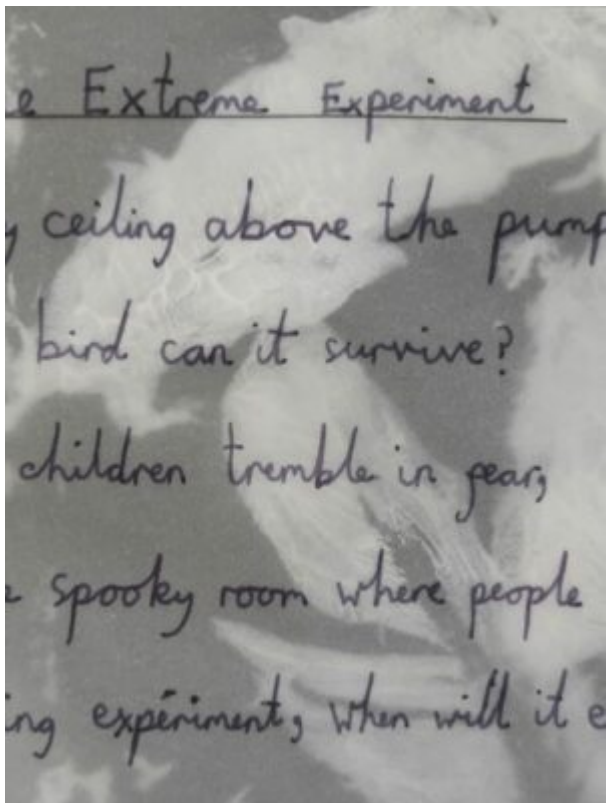 e Extreme Experiment
y ceiling above the pump
bird can it survive?
children tremble in fear,
spooky room where people
ing experiment, when will it e